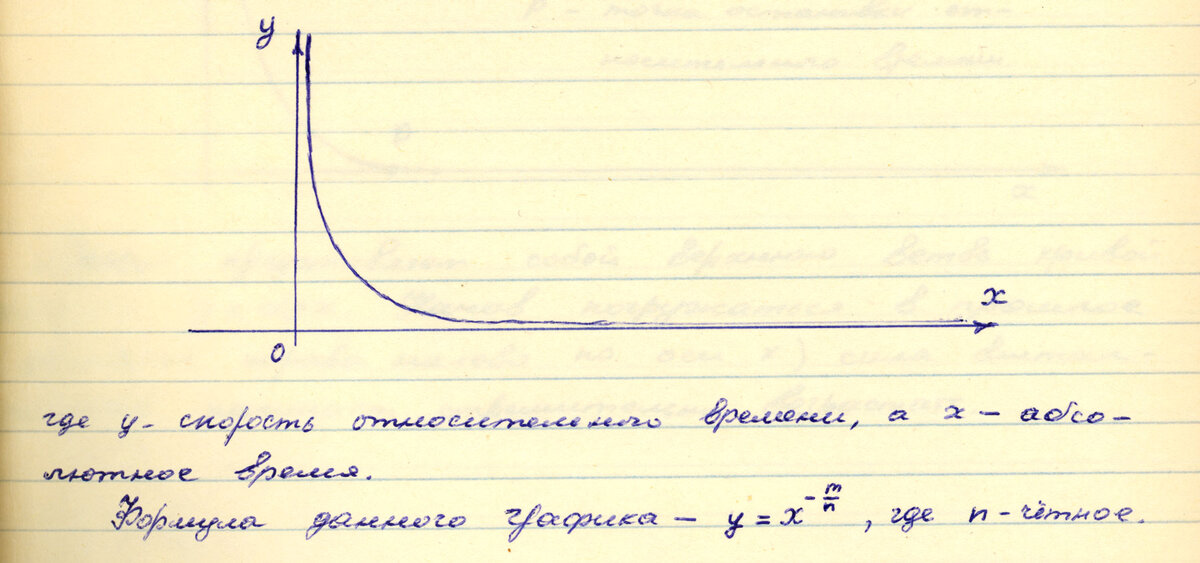 y
x
0
где y - скорость относительного времени, а x - абсо-
лютное время.
Формула данного графика - y = x^{-m/n}, где n - чётное.